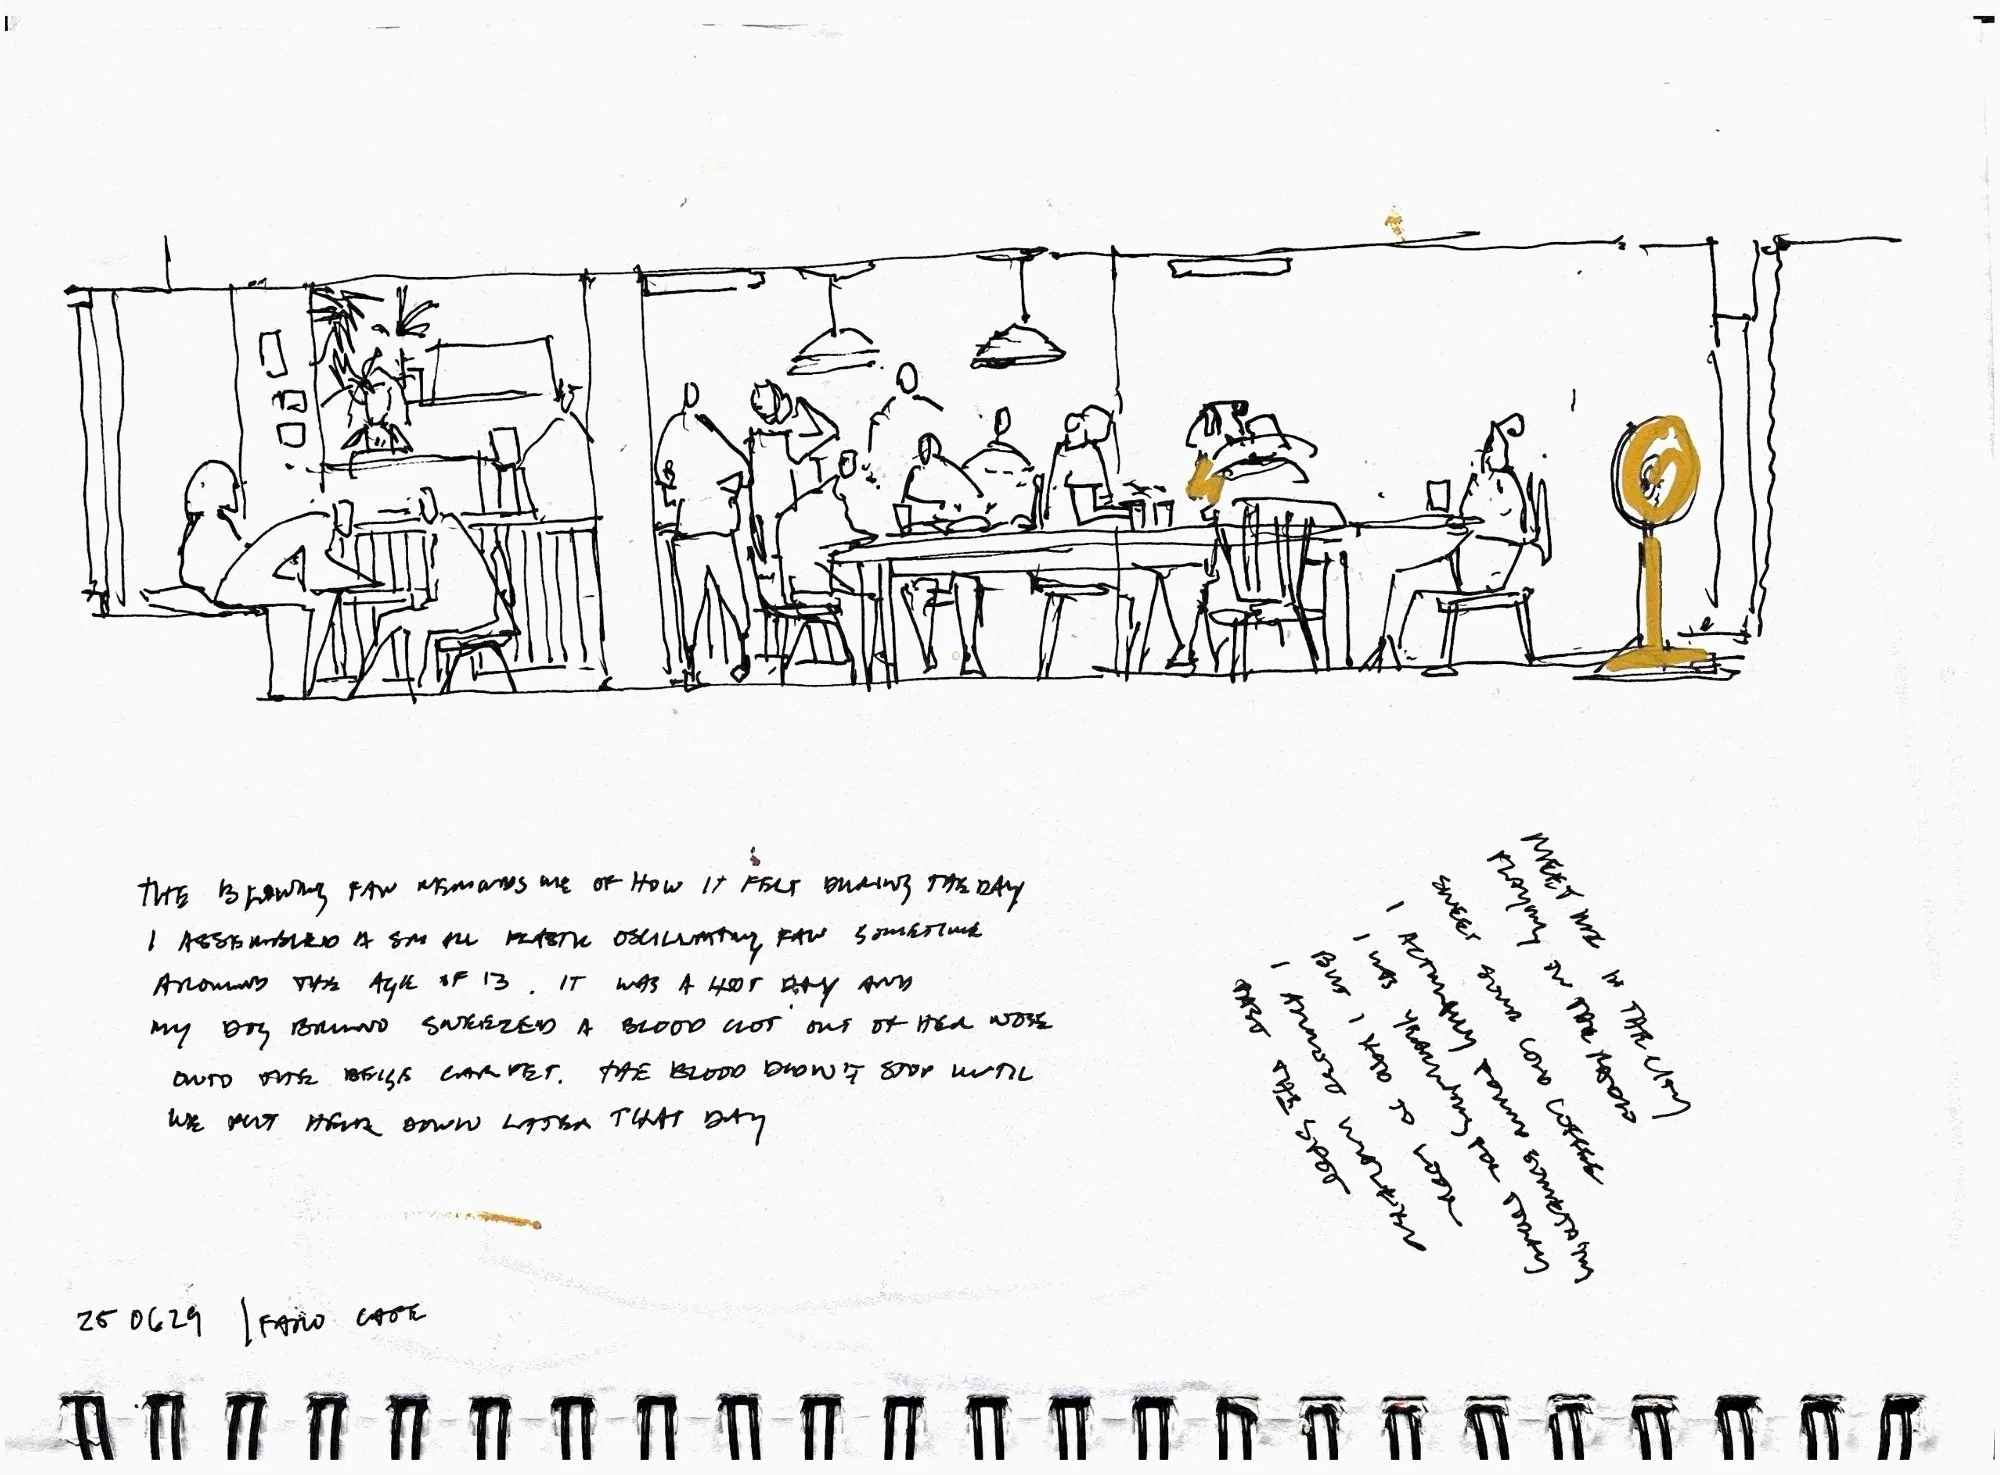 THE BLOWING FAN REMINDS ME OF HOW IT FELT DURING THE DAY
I ASSEMBLED A SMALL PLASTIC OSCILLATING FAN SOMETIME
AROUND THE AGE OF 13. IT WAS A HOT DAY AND
MY DOG BRUNO SNEEZED A BLOOD CLOT OUT OF HER NOSE
ONTO THE BEIGE CARPET. THE BLOOD DIDN'T STOP UNTIL
WE PUT HER DOWN LATER THAT DAY
MEET ME IN THE CITY
PLAYING ON THE RADIO
SWEET SOUR COLD COFFEE
I ACTUALLY FOUND SOMETHING
I WAS
BUT I HAD TO
I ALMOST
PAST THE
250629 | FARO CAFE